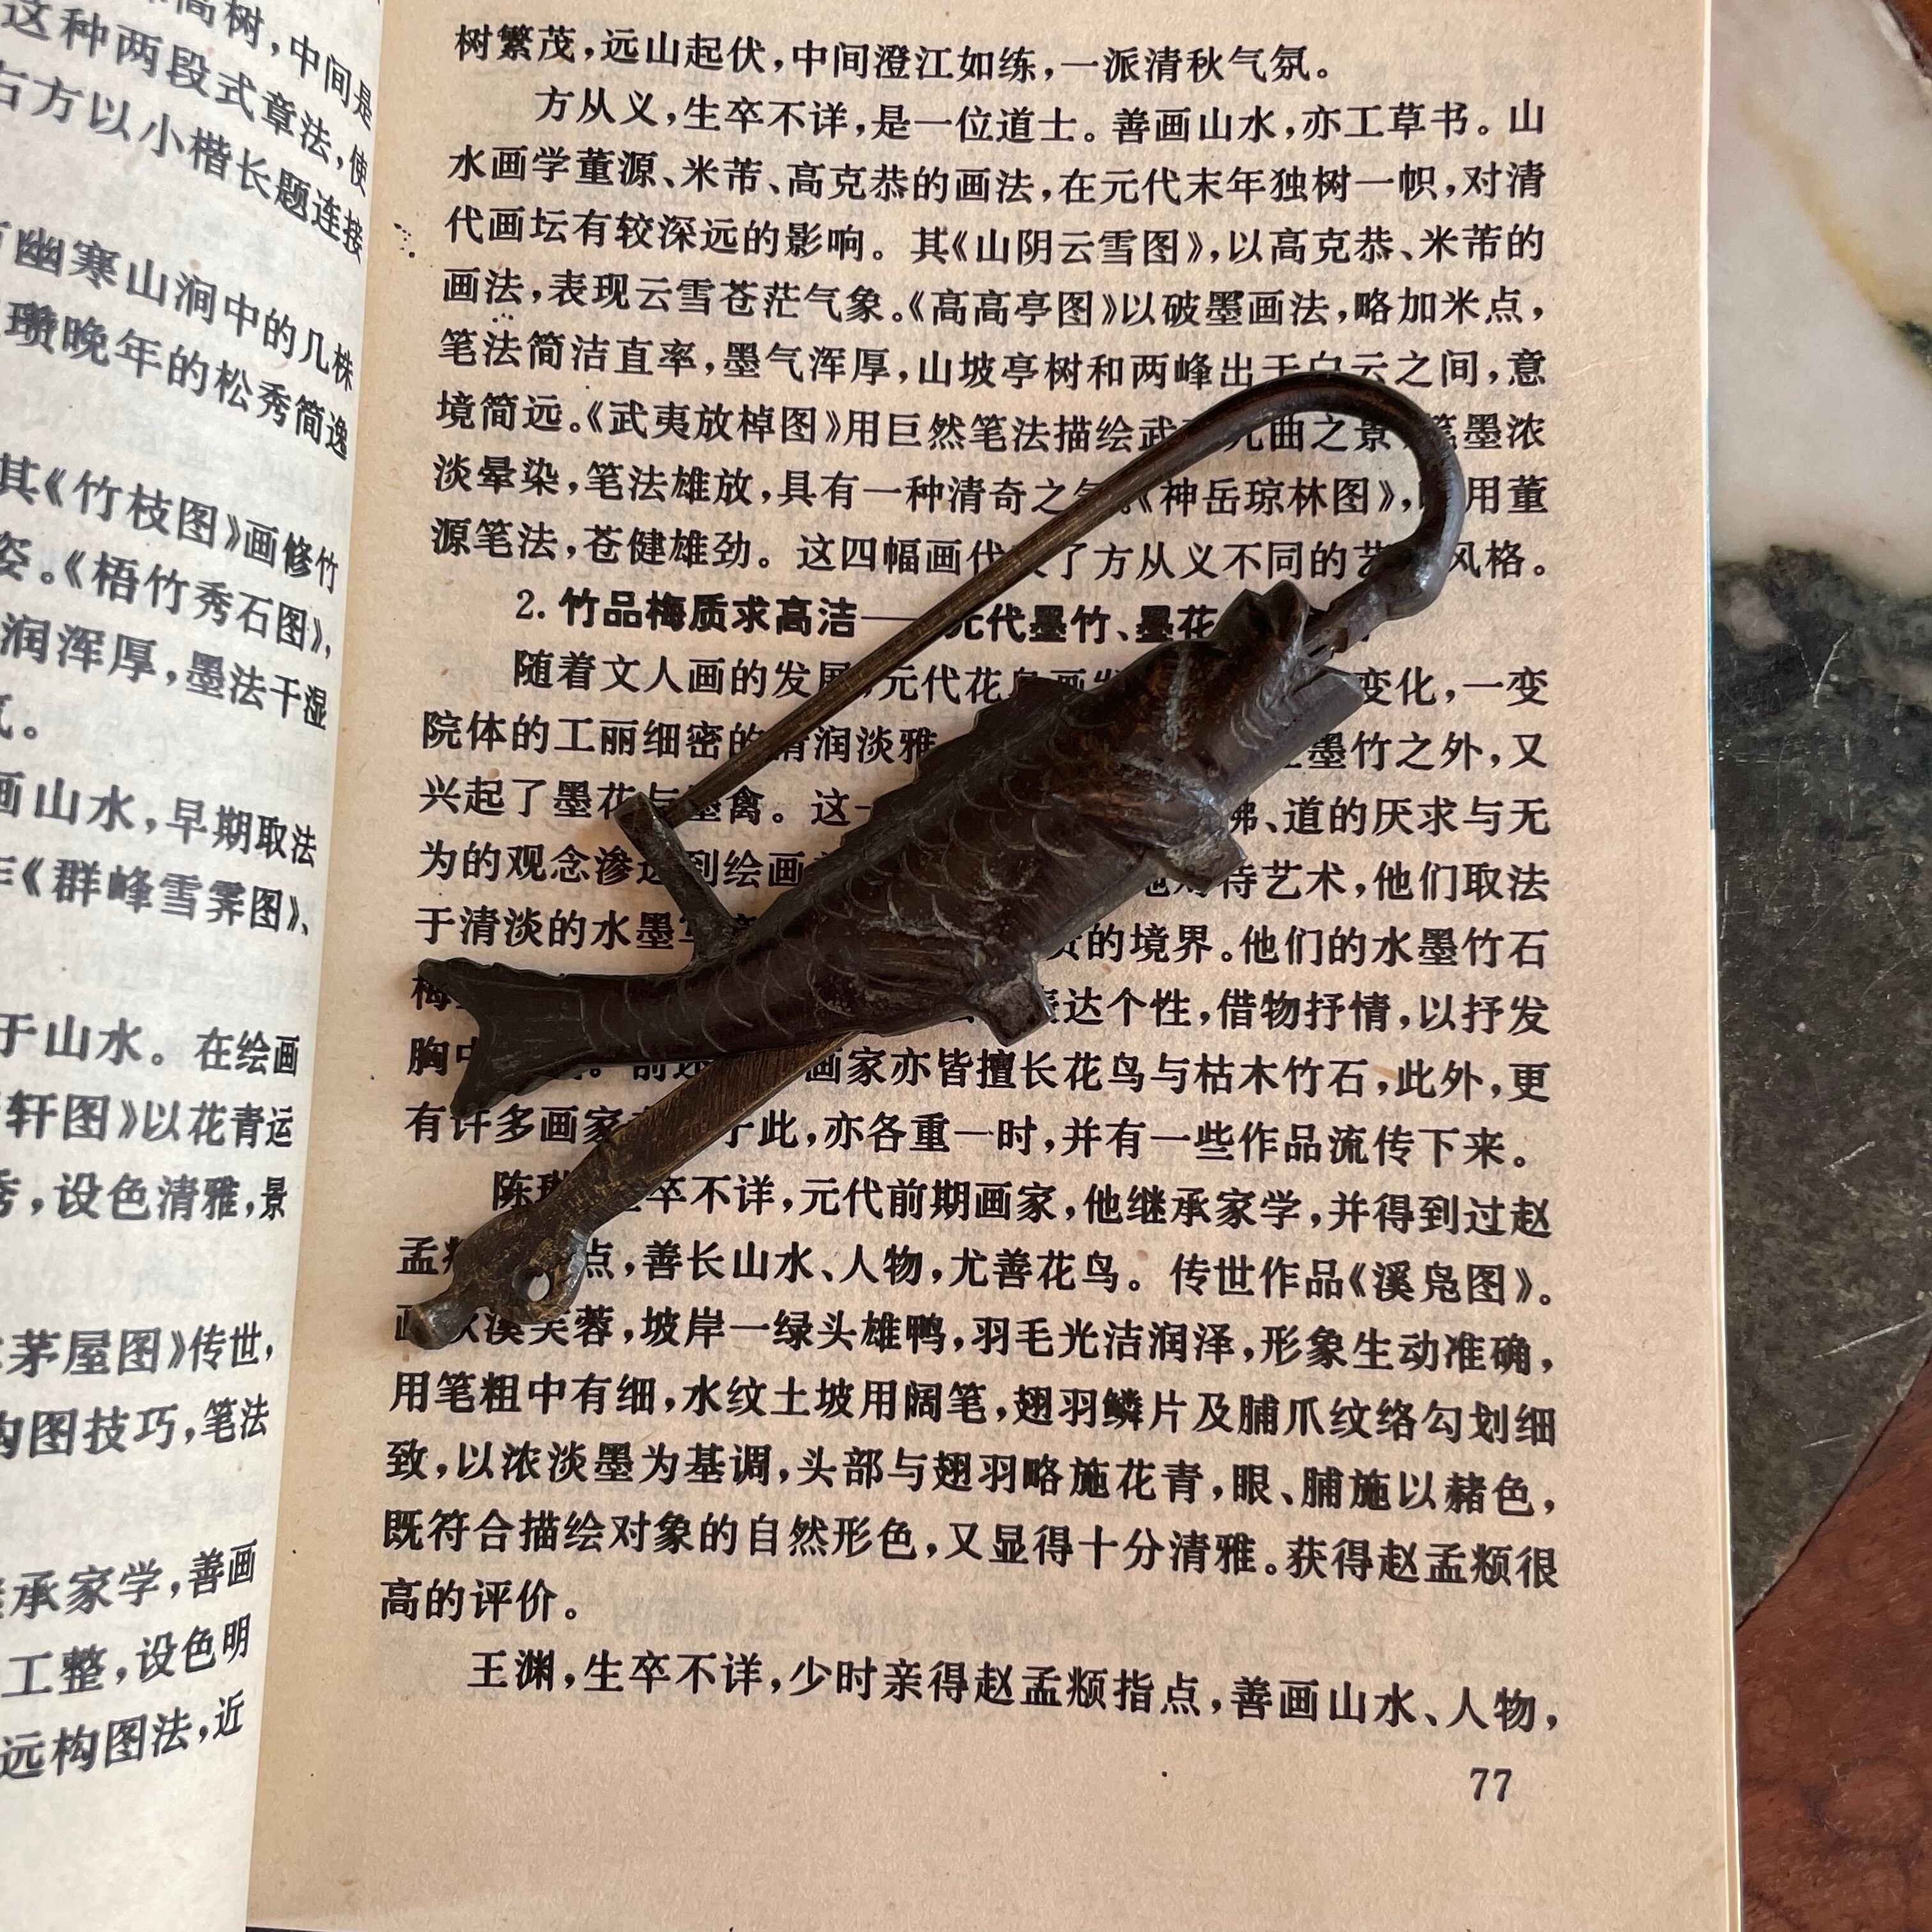 高树，中间是
这种两段式章法，使
右方以小楷长题连接
幽寒山涧中的几株
瓒晚年的松秀简逸
其《竹枝图》画修竹
姿。《梧竹秀石图》，
润浑厚，墨法干湿
气。
画山水，早期取法
作《群峰雪霁图》、
于山水。在绘画
轩图》以花青运
秀，设色清雅，景
茅屋图》传世，
构图技巧，笔法
继承家学，善画
工整，设色明
远构图法，近
树繁茂，远山起伏，中间澄江如练，一派清秋气氛。
方从义，生卒不详，是一位道士。善画山水，亦工草书。山
水画学董源、米芾、高克恭的画法，在元代末年独树一帜，对清
代画坛有较深远的影响。其《山阴云雪图》，以高克恭、米芾的
画法，表现云雪苍茫气象。《高高亭图》以破墨画法，略加米点，
笔法简洁直率，墨气浑厚，山坡亭树和两峰出于白云之间，意
境简远。《武夷放棹图》用巨然笔法描绘武夷九曲之景，笔墨浓
淡晕染，笔法雄放，具有一种清奇之气。《神岳琼林图》，用董
源笔法，苍健雄劲。这四幅画代 了方从义不同的艺 风格。
2. 竹品梅质求高洁——元代墨竹、墨花
随着文人画的发展，元代花鸟画 变化，一变
院体的工丽细密的清润淡雅 墨竹之外，又
兴起了墨花与墨禽。这一 佛、道的厌求与无
为的观念渗透到绘画 地对待艺术，他们取法
于清淡的水墨写 的境界。他们的水墨竹石
梅 表达个性，借物抒情，以抒发
胸中 。前述 画家亦皆擅长花鸟与枯木竹石，此外，更
有许多画家 于此，亦各重一时，并有一些作品流传下来。
陈琳，生卒不详，元代前期画家，他继承家学，并得到过赵
孟頫 点，善长山水、人物，尤善花鸟。传世作品《溪凫图》。
画秋溪芙蓉，坡岸一绿头雄鸭，羽毛光洁润泽，形象生动准确，
用笔粗中有细，水纹土坡用阔笔，翅羽鳞片及脯爪纹络勾划细
致，以浓淡墨为基调，头部与翅羽略施花青，眼、脯施以赭色，
既符合描绘对象的自然形色，又显得十分清雅。获得赵孟頫很
高的评价。
王渊，生卒不详，少时亲得赵孟頫指点，善画山水、人物，
77